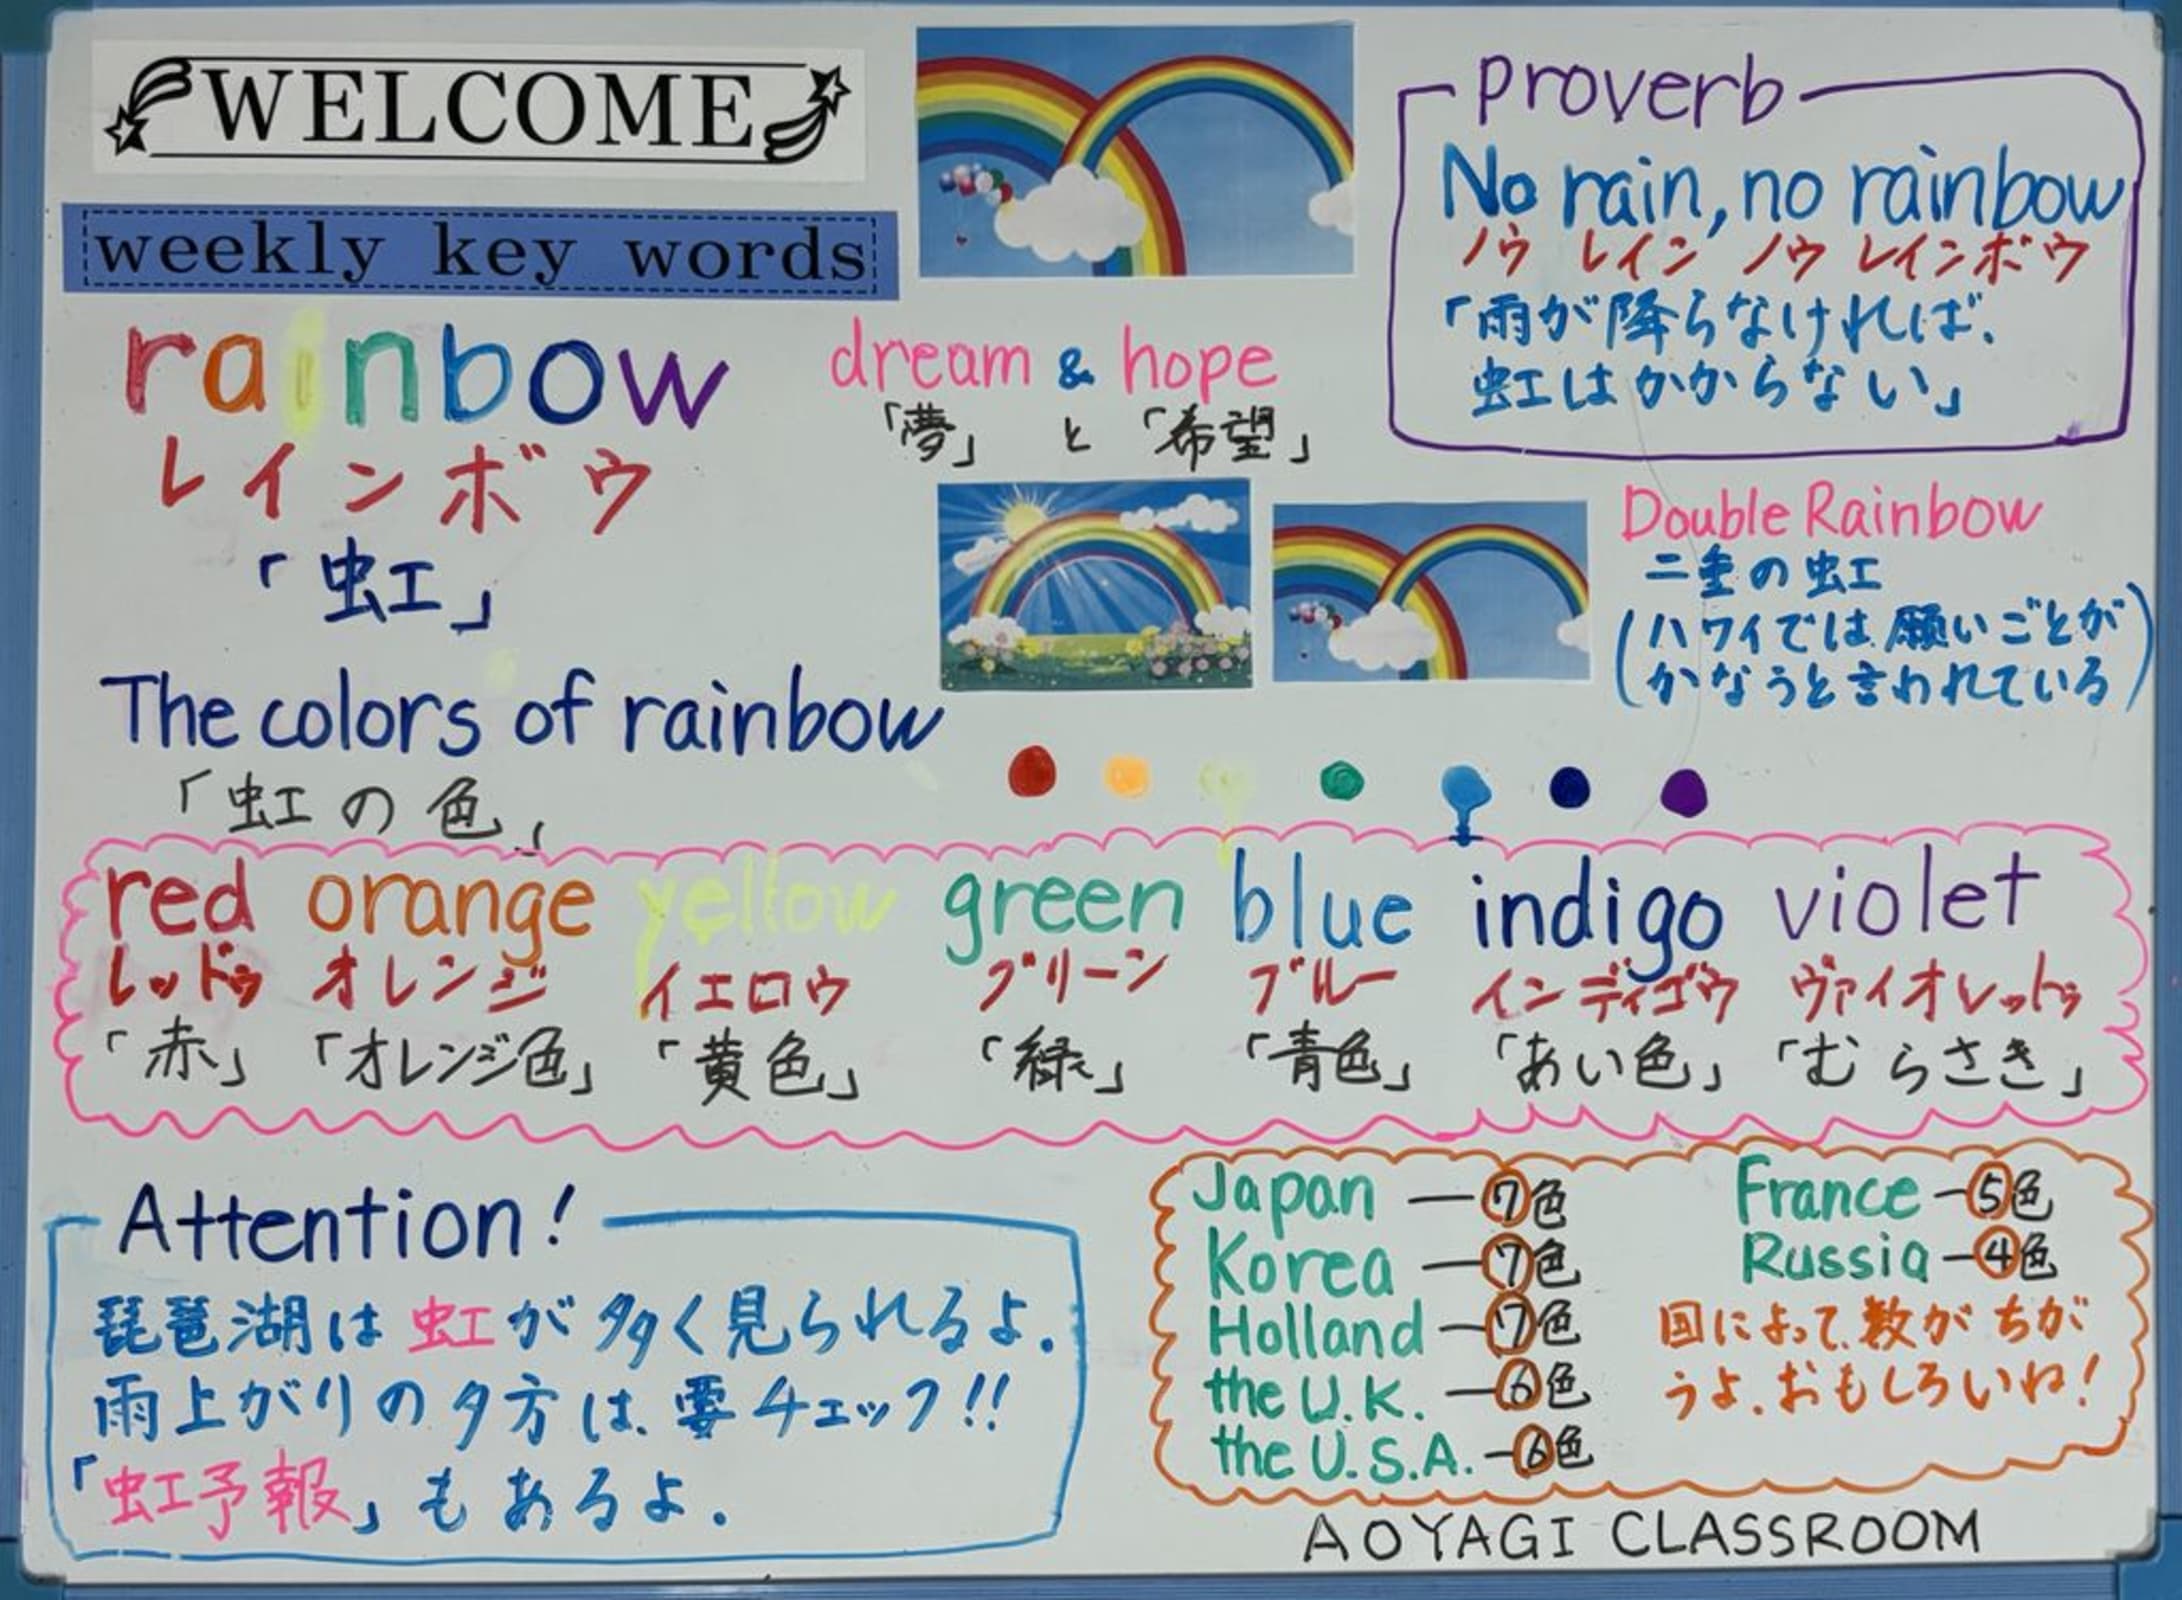 WELCOME
weekly key words
rainbow
レインボウ
「虹」
dream & hope
「夢」と「希望」
proverb
No rain, no rainbow
ノウ レイン ノウ レインボウ
「雨が降らなければ、
虹はかからない」
Double Rainbow
二重の虹
(ハワイでは、願いごとが
かなうと言われている)
The colors of rainbow
「虹の色」
red orange yellow green blue indigo violet
レッドゥ オレンジ イエロウ グリーン ブルー インディゴウ ヴァイオレットゥ
「赤」 「オレンジ色」 「黄色」 「緑」 「青色」 「あい色」 「むらさき」
Attention!
琵琶湖は虹が多く見られるよ.
雨上がりの夕方は、要チェック!!
「虹予報」もあるよ.
Japan — 7色
Korea — 7色
Holland — 7色
the U.K. — 6色
the U.S.A. — 6色
France — 5色
Russia — 4色
国によって、数がちが
うよ.おもしろいね!
AOYAGI CLASSROOM